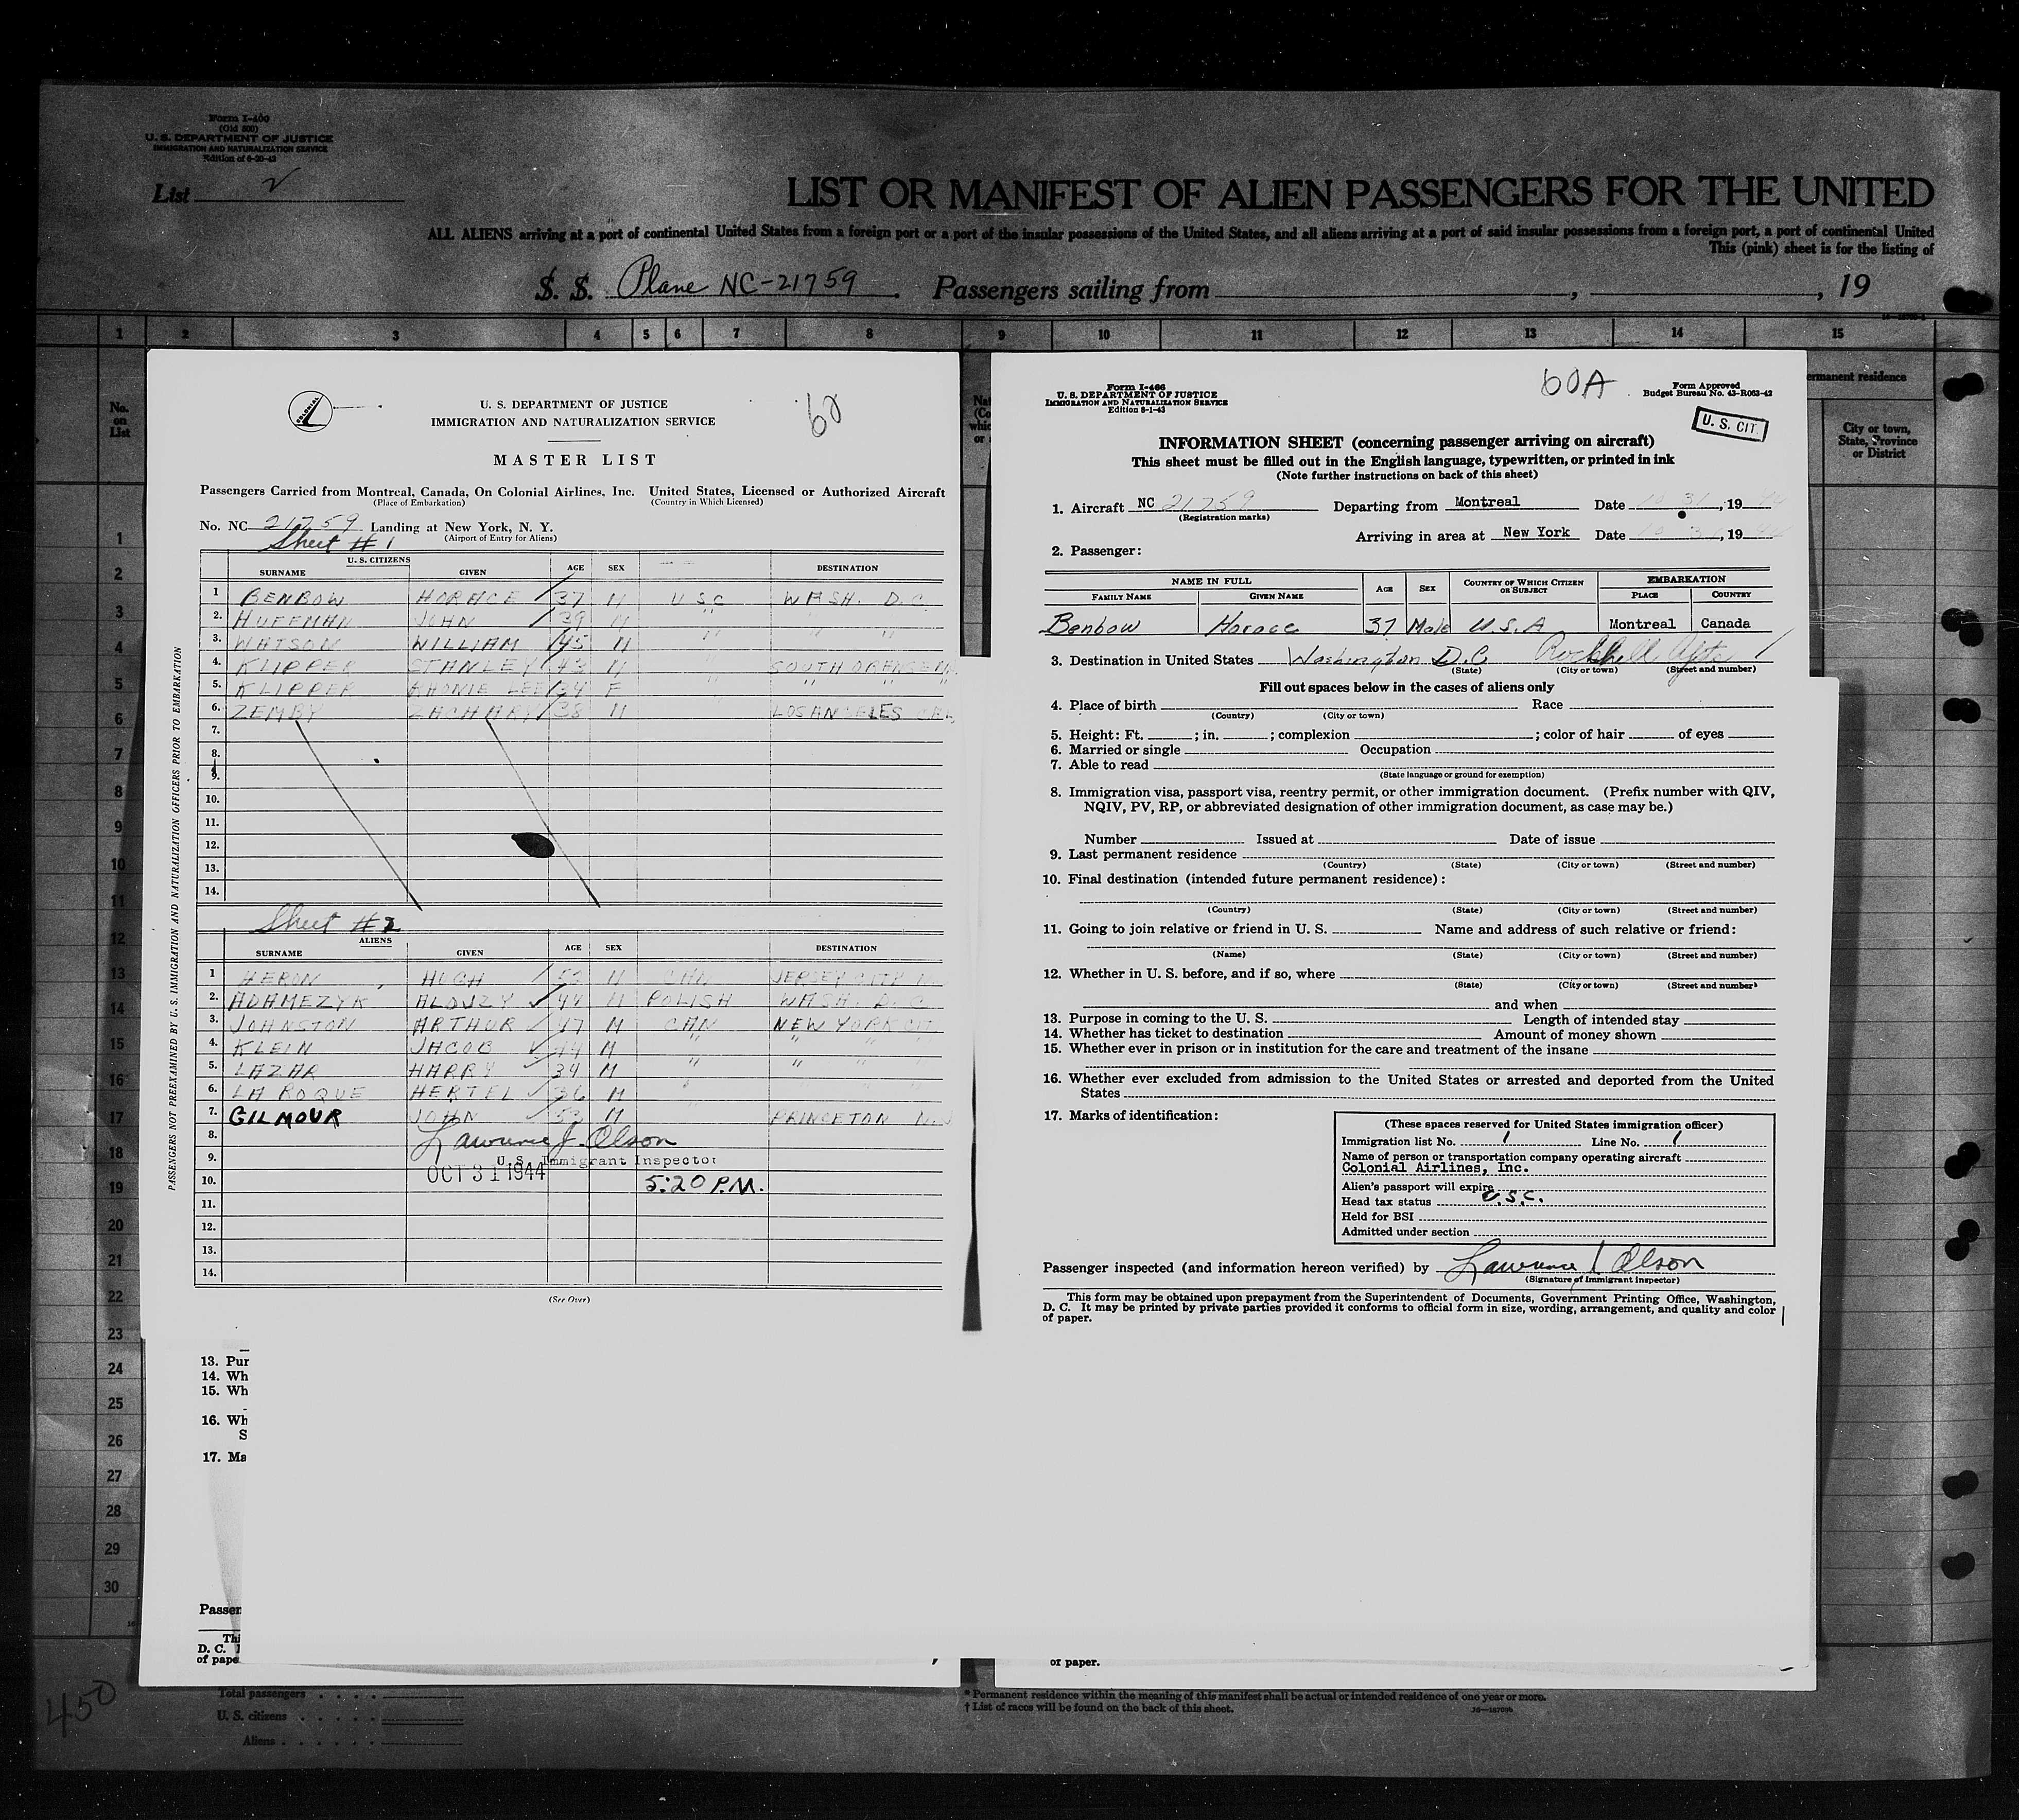 Form I-400
(Old 500)
U. S. DEPARTMENT OF JUSTICE
IMMIGRATION AND NATURALIZATION SERVICE
Edition of 6-20-43
List 2
LIST OR MANIFEST OF ALIEN PASSENGERS FOR THE UNITED
ALL ALIENS arriving at a port of continental United States from a foreign port or a port of the insular possessions of the United States, and all aliens arriving at a port of said insular possessions from a foreign port, a port of continental United
This (pink) sheet is for the listing of
S. S. Plane NC-21759 . Passengers sailing from , , 19
1 2 3 4 5 6 7 8 9 10 11 12 13 14 15
No. on List
ermanent residence
City or town, State, Province or District
1
2
3
4
5
6
7
8
9
10
11
12
13
14
15
16
17
18
19
20
21
22
23
24
25
26
27
28
29
30
COLONIAL
U. S. DEPARTMENT OF JUSTICE
IMMIGRATION AND NATURALIZATION SERVICE
60
MASTER LIST
Passengers Carried from Montreal, Canada, On Colonial Airlines, Inc. United States, Licensed or Authorized Aircraft
(Place of Embarkation) (Country in Which Licensed)
No. NC 21759 Landing at New York, N. Y.
(Airport of Entry for Aliens)
Sheet #1
U. S. CITIZENS
SURNAME GIVEN AGE SEX DESTINATION
1 BENBOW HORACE 37 M USC WASH. D.C.
2. HUFFMAN JOHN 39 M " " "
3. WATSON WILLIAM 45 M " " "
4. KLIPPER STANLEY 43 M " SOUTH ORANGE
5. KLIPPER LEE 34 F " " "
6. ZEMBY ZACHARY 38 M LOS ANGELES CAL
7.
8.
9.
10.
11.
12.
13.
14.
Sheet #2
ALIENS
SURNAME GIVEN AGE SEX DESTINATION
1 HERON HUGH M CAN JERSEY CITY N.
2. ADAMEZYK ALOJZY 44 M POLISH WASH. D.C.
3. JOHNSTON ARTHUR 47 M CAN NEW YORK CIT
4. KLEIN JACOB 44 M " " " "
5. LAZAR HARRY 34 M " " " "
6. LA ROQUE HERTEL 36 M "
7. GILMOUR JOHN 53 M PRINCETON N.J
8. Lawrence J. Olson
9. U. S. Immigrant Inspector
10. OCT 31 1944 5:20 P.M.
11.
12.
13.
14.
(See Over)
PASSENGERS NOT PREEXAMINED BY U. S. IMMIGRATION AND NATURALIZATION OFFICERS PRIOR TO EMBARKATION
13. Pur
14. Wh
15. Wh
16. Wh
S
17. Ma
Passen
Thi
D. C. I
of pape
Form I-466
U. S. DEPARTMENT OF JUSTICE
IMMIGRATION AND NATURALIZATION SERVICE
Edition 8-1-43
60A
Form Approved
Budget Bureau No. 43-R063-42
U. S. CIT.
INFORMATION SHEET (concerning passenger arriving on aircraft)
This sheet must be filled out in the English language, typewritten, or printed in ink
(Note further instructions on back of this sheet)
1. Aircraft NC 21759 Departing from Montreal Date 10 31, 19 44
(Registration marks)
Arriving in area at New York Date 10 31, 19 44
2. Passenger:
NAME IN FULL AGE SEX COUNTRY OF WHICH CITIZEN OR SUBJECT EMBARKATION
FAMILY NAME GIVEN NAME PLACE COUNTRY
Benbow Horace 37 Male U.S.A Montreal Canada
3. Destination in United States Washington D.C
(State) (City or town) (Street and number)
Fill out spaces below in the cases of aliens only
4. Place of birth Race
(Country) (City or town)
5. Height: Ft. ; in. ; complexion ; color of hair of eyes
6. Married or single Occupation
7. Able to read
(State language or ground for exemption)
8. Immigration visa, passport visa, reentry permit, or other immigration document. (Prefix number with QIV,
NQIV, PV, RP, or abbreviated designation of other immigration document, as case may be.)
Number Issued at Date of issue
9. Last permanent residence
(Country) (State) (City or town) (Street and number)
10. Final destination (intended future permanent residence):
(Country) (State) (City or town) (Street and number)
11. Going to join relative or friend in U. S. Name and address of such relative or friend:
(Name) (State) (City or town) (Street and number)
12. Whether in U. S. before, and if so, where
(State) (City or town) (Street and number)
and when
13. Purpose in coming to the U. S. Length of intended stay
14. Whether has ticket to destination Amount of money shown
15. Whether ever in prison or in institution for the care and treatment of the insane
16. Whether ever excluded from admission to the United States or arrested and deported from the United
States
17. Marks of identification:
(These spaces reserved for United States immigration officer)
Immigration list No. 1 Line No. 1
Name of person or transportation company operating aircraft
Colonial Airlines, Inc.
Alien's passport will expire
Head tax status U.S.C.
Held for BSI
Admitted under section
Passenger inspected (and information hereon verified) by Lawrence J Olson
(Signature of Immigrant Inspector)
This form may be obtained upon prepayment from the Superintendent of Documents, Government Printing Office, Washington,
D. C. It may be printed by private parties provided it conforms to official form in size, wording, arrangement, and quality and color
of paper.
of paper.
450
Total passengers
U. S. citizens
Aliens
* Permanent residence within the meaning of this manifest shall be actual or intended residence of one year or more.
† List of races will be found on the back of this sheet.